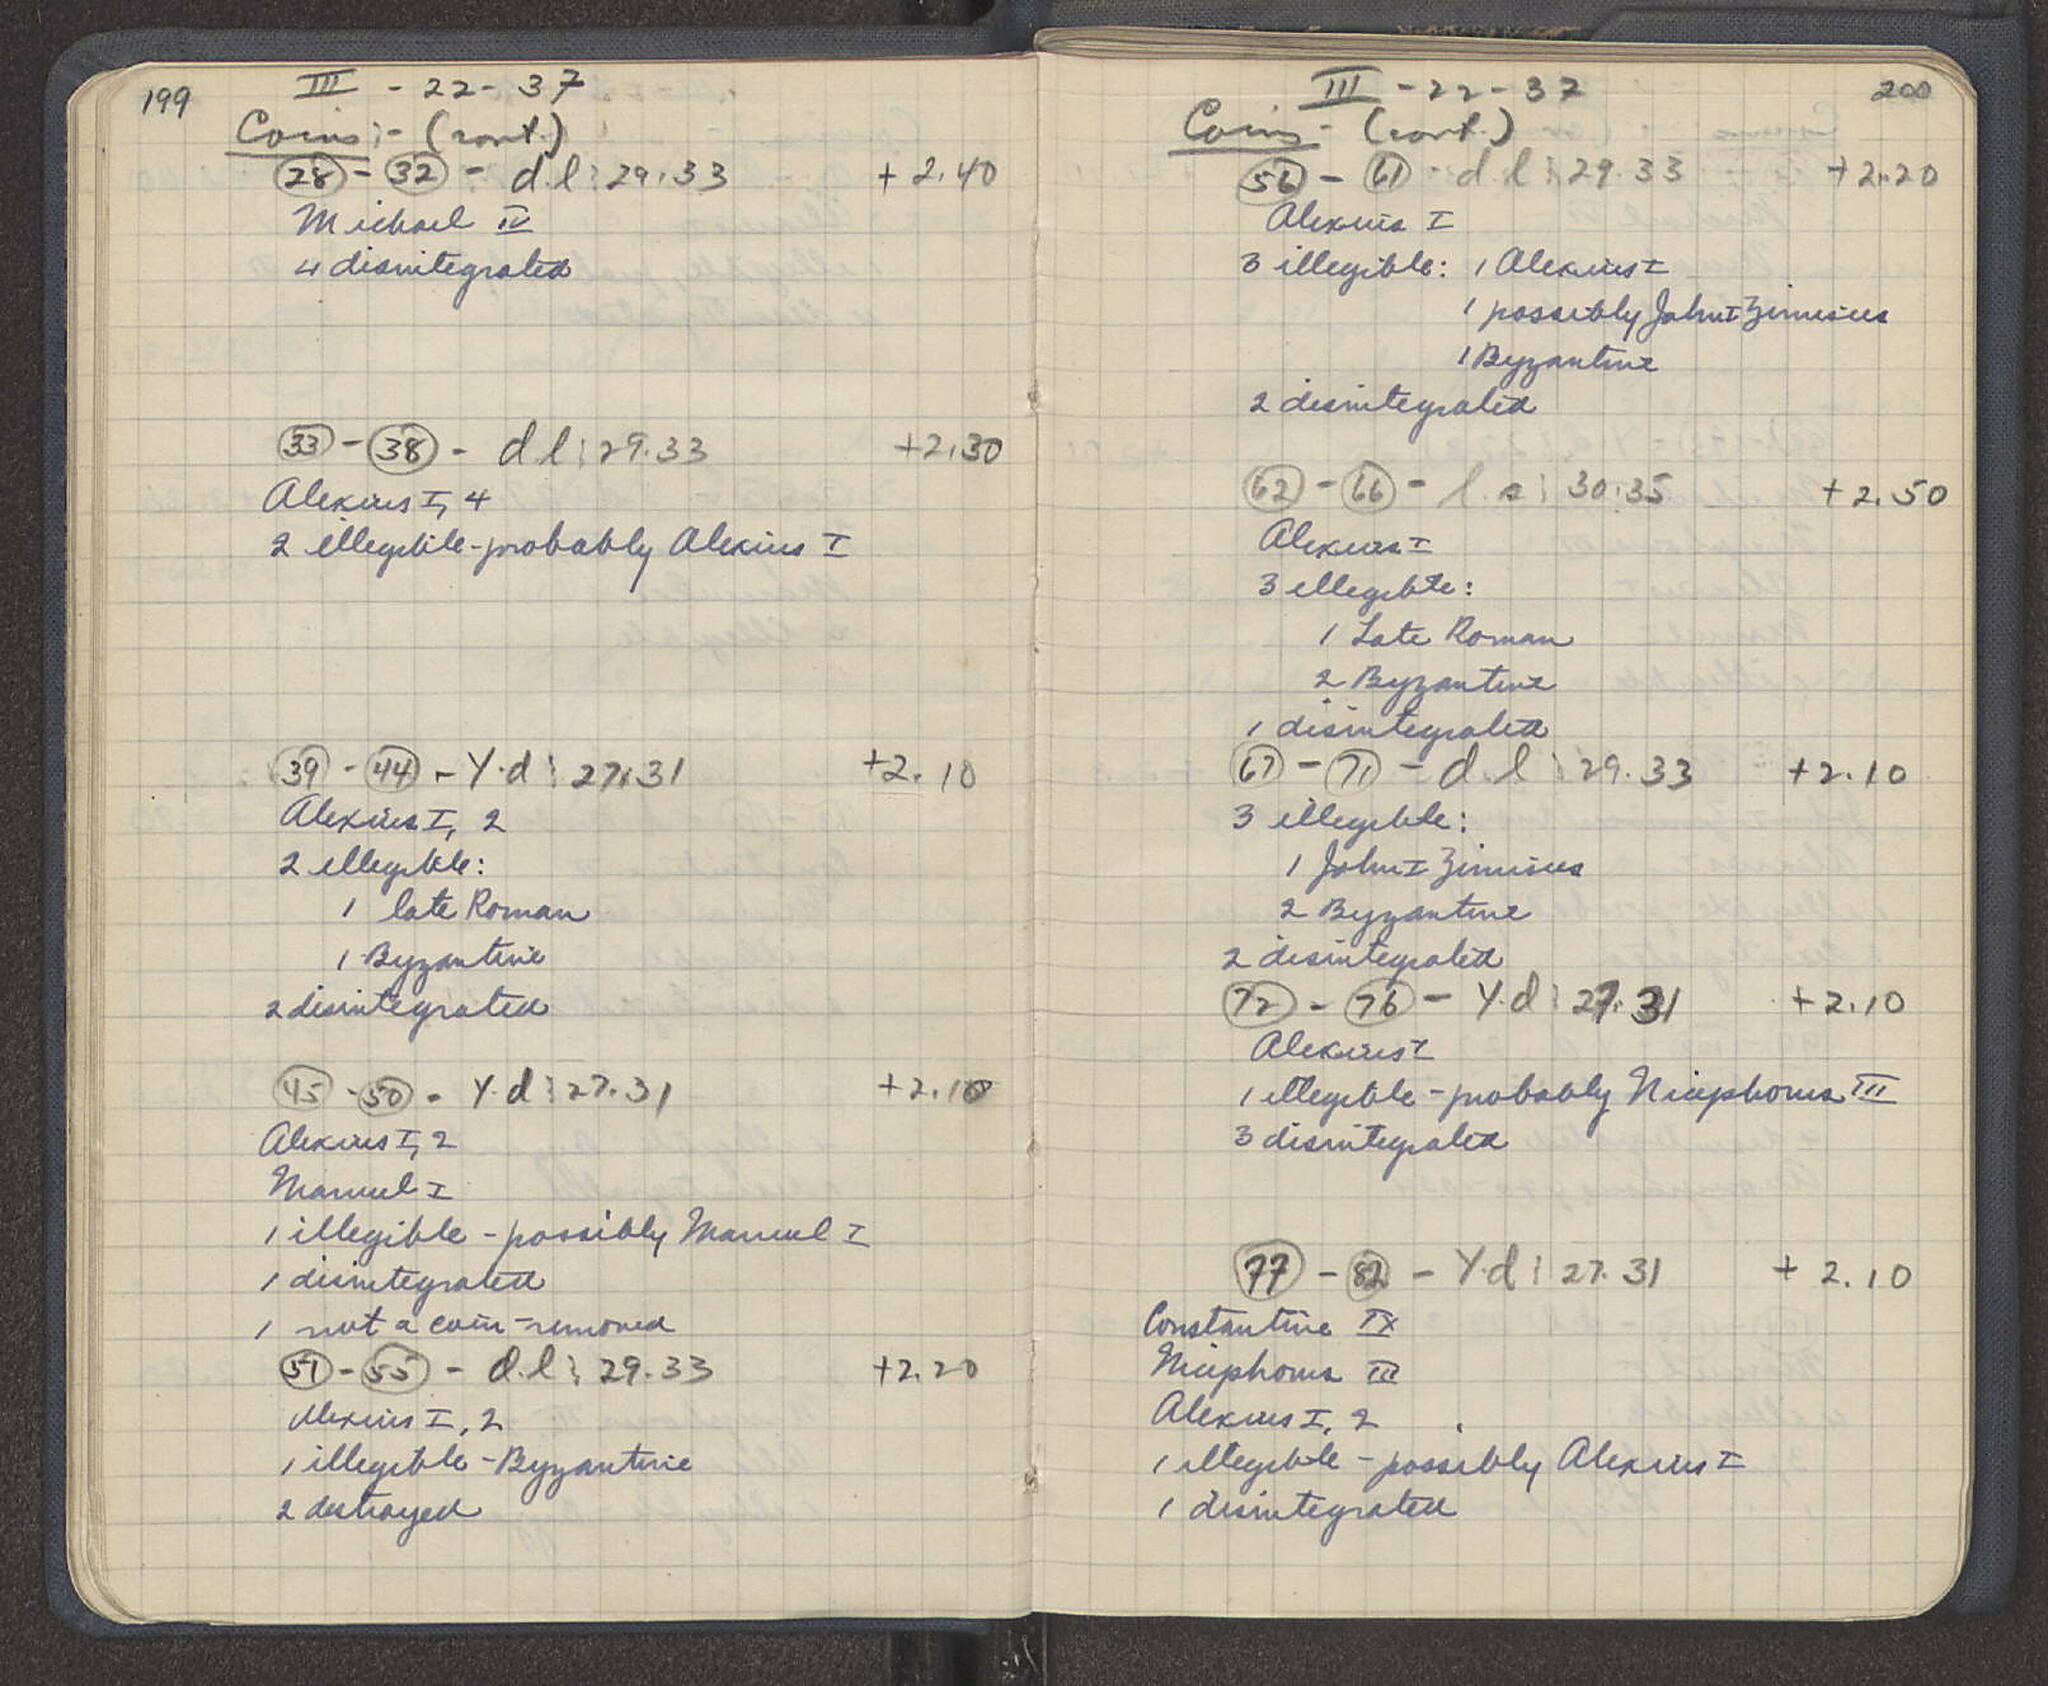 199
III - 22 - 37
Coins:- (cont.)
28 - 32 - d.l : 29.33 + 2.40
Michael IV
4 disintegrated
33 - 38 - d l : 29.33 + 2.30
Alexius I, 4
2 illegible - probably Alexius I
39 - 44 - Y.d : 27.31 + 2.10
Alexius I, 2
2 illegible:
1 late Roman
1 Byzantine
2 disintegrated
45 - 50 - Y.d : 27.31 + 2.10
Alexius I, 2
Manuel I
1 illegible - possibly Manuel I
1 disintegrated
1 not a coin - removed
51 - 55 - d.l : 29.33 + 2.20
Alexius I, 2
1 illegible - Byzantine
2 destroyed
200
III - 22 - 37
Coins - (cont.)
56 - 61 - d.l : 29.33 + 2.20
Alexius I
3 illegible: 1 Alexius I
1 possibly John I Zimisius
1 Byzantine
2 disintegrated
62 - 66 - l. : 30.35 + 2.50
Alexius I
3 illegible:
1 Late Roman
2 Byzantine
1 disintegrated
67 - 71 - d.l : 29.33 + 2.10
3 illegible:
1 John I Zimisius
2 Byzantine
2 disintegrated
72 - 76 - Y.d : 27.31 + 2.10
Alexius I
1 illegible - probably Nicephorus III
3 disintegrated
77 - 82 - Y.d : 27.31 + 2.10
Constantine IX
Nicephorus III
Alexius I, 2
1 illegible - possibly Alexius I
1 disintegrated